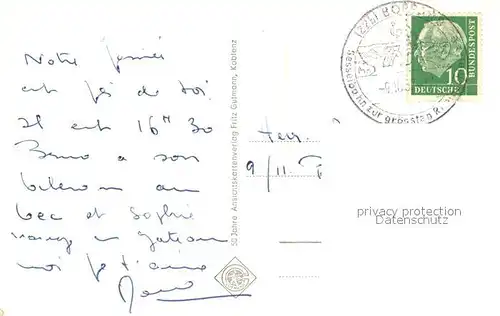 Notre
est pas de toi
Il est 16ʰ 30
Bruno a son
biberon au
bec et Sophie
mange un gateau
moi je t'aime
50 Jahre Ansichtskartenverlag Fritz Gutmann, Koblenz
(22b) BOPPARD
Sesselbahn zur grössten
10
DEUTSCHE
BUNDESPOST
Herr
9/11.
privacy protection
Datenschutz